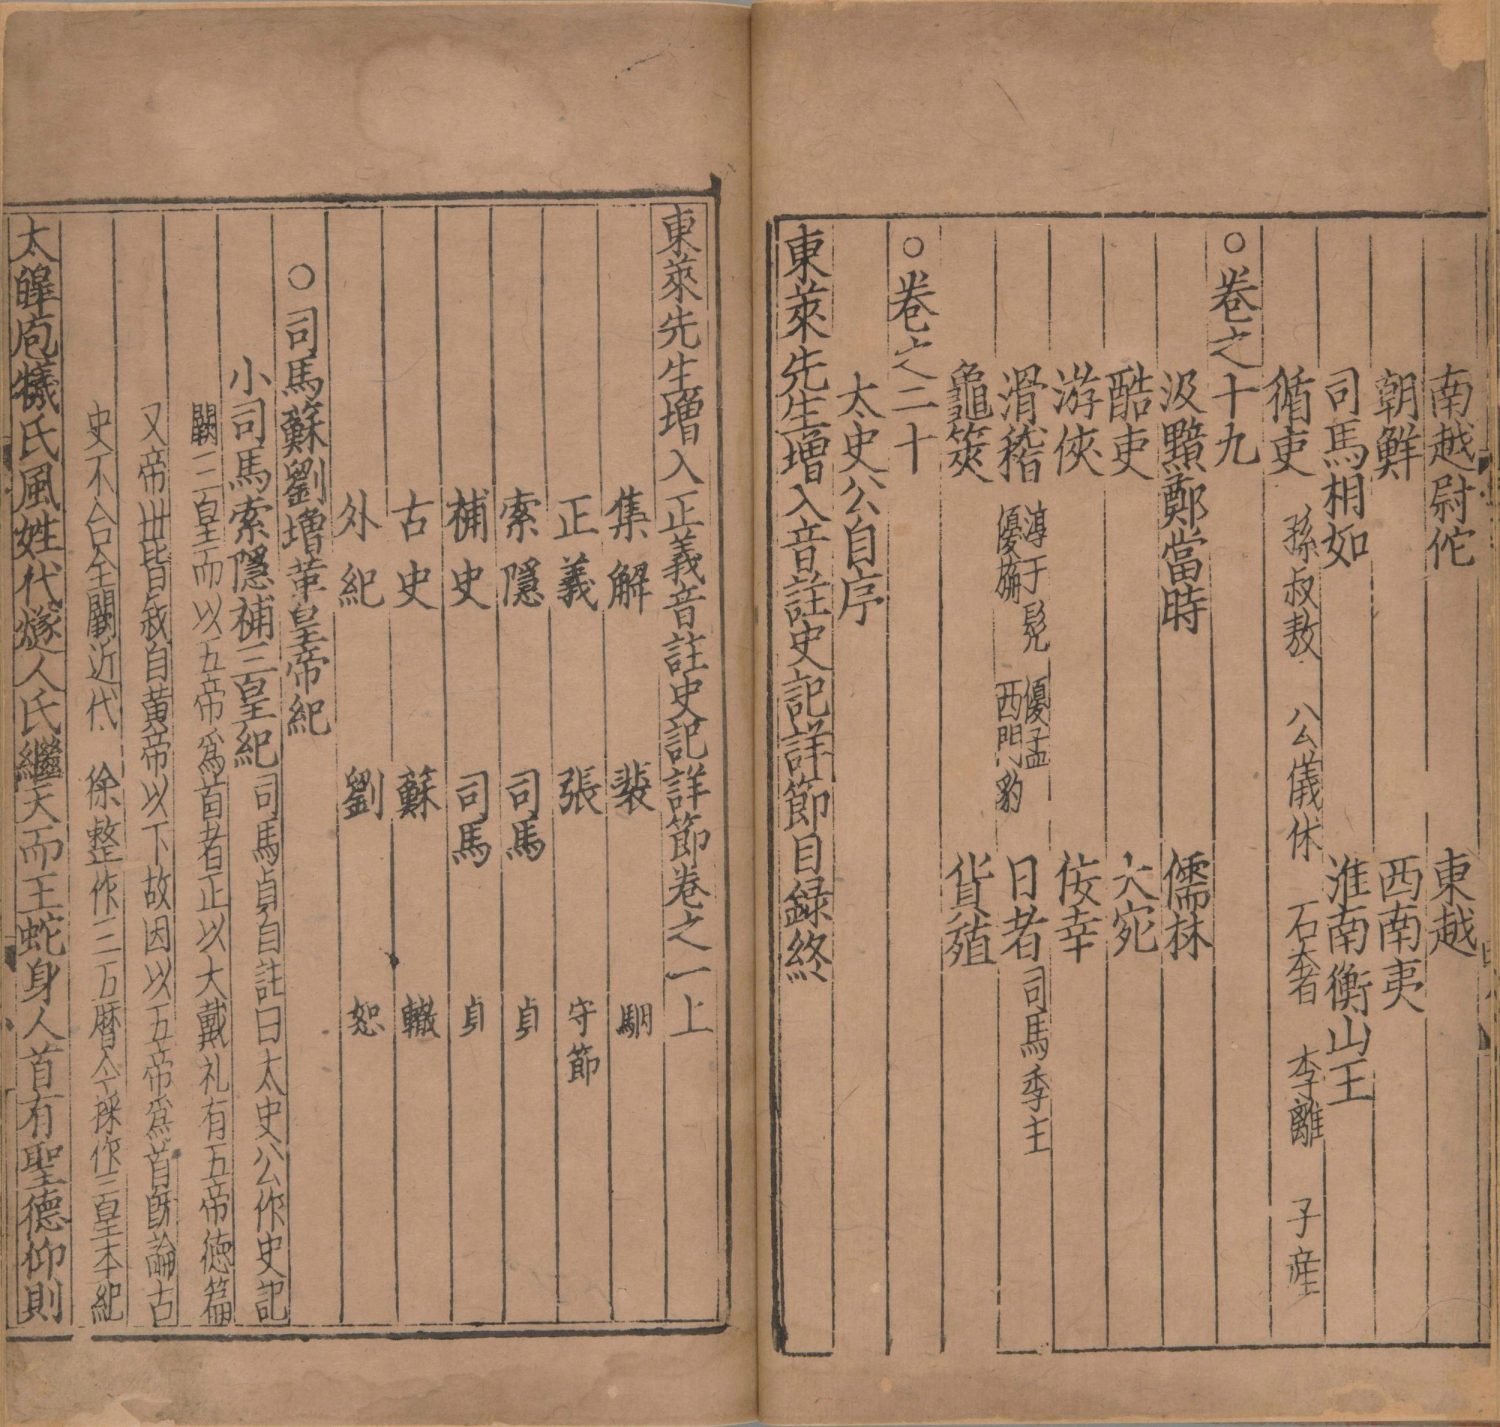 南越尉佗　東越
朝鮮　西南夷
司馬相如　淮南衡山王
循吏　孫叔敖　公儀休　石奢　李離　子産
○卷之十九
汲黯鄭當時　儒林
酷吏　大宛
游俠　佞幸
滑稽　淳于髡　優孟　優旃　西門豹　日者　司馬季主
龜筴　貨殖
○卷之二十
太史公自序
東萊先生增入音註史記詳節目録終
東萊先生增入正義音註史記詳節卷之一上
集解　裴　駰
正義　張　守節
索隱　司馬　貞
補史　司馬　貞
古史　蘇　轍
外紀　劉　恕
○司馬蘇劉增革皇帝紀
小司馬索隱補三皇紀　司馬貞自註曰太史公作史記
闕三皇而以五帝爲首者正以大戴礼有五帝徳篇
又帝世皆叙自黄帝以下故因以五帝爲首既論古
史不合全闕近代　徐整作三五曆今採作三皇本紀
太皥庖犧氏風姓代燧人氏繼天而王蛇身人首有聖德仰則